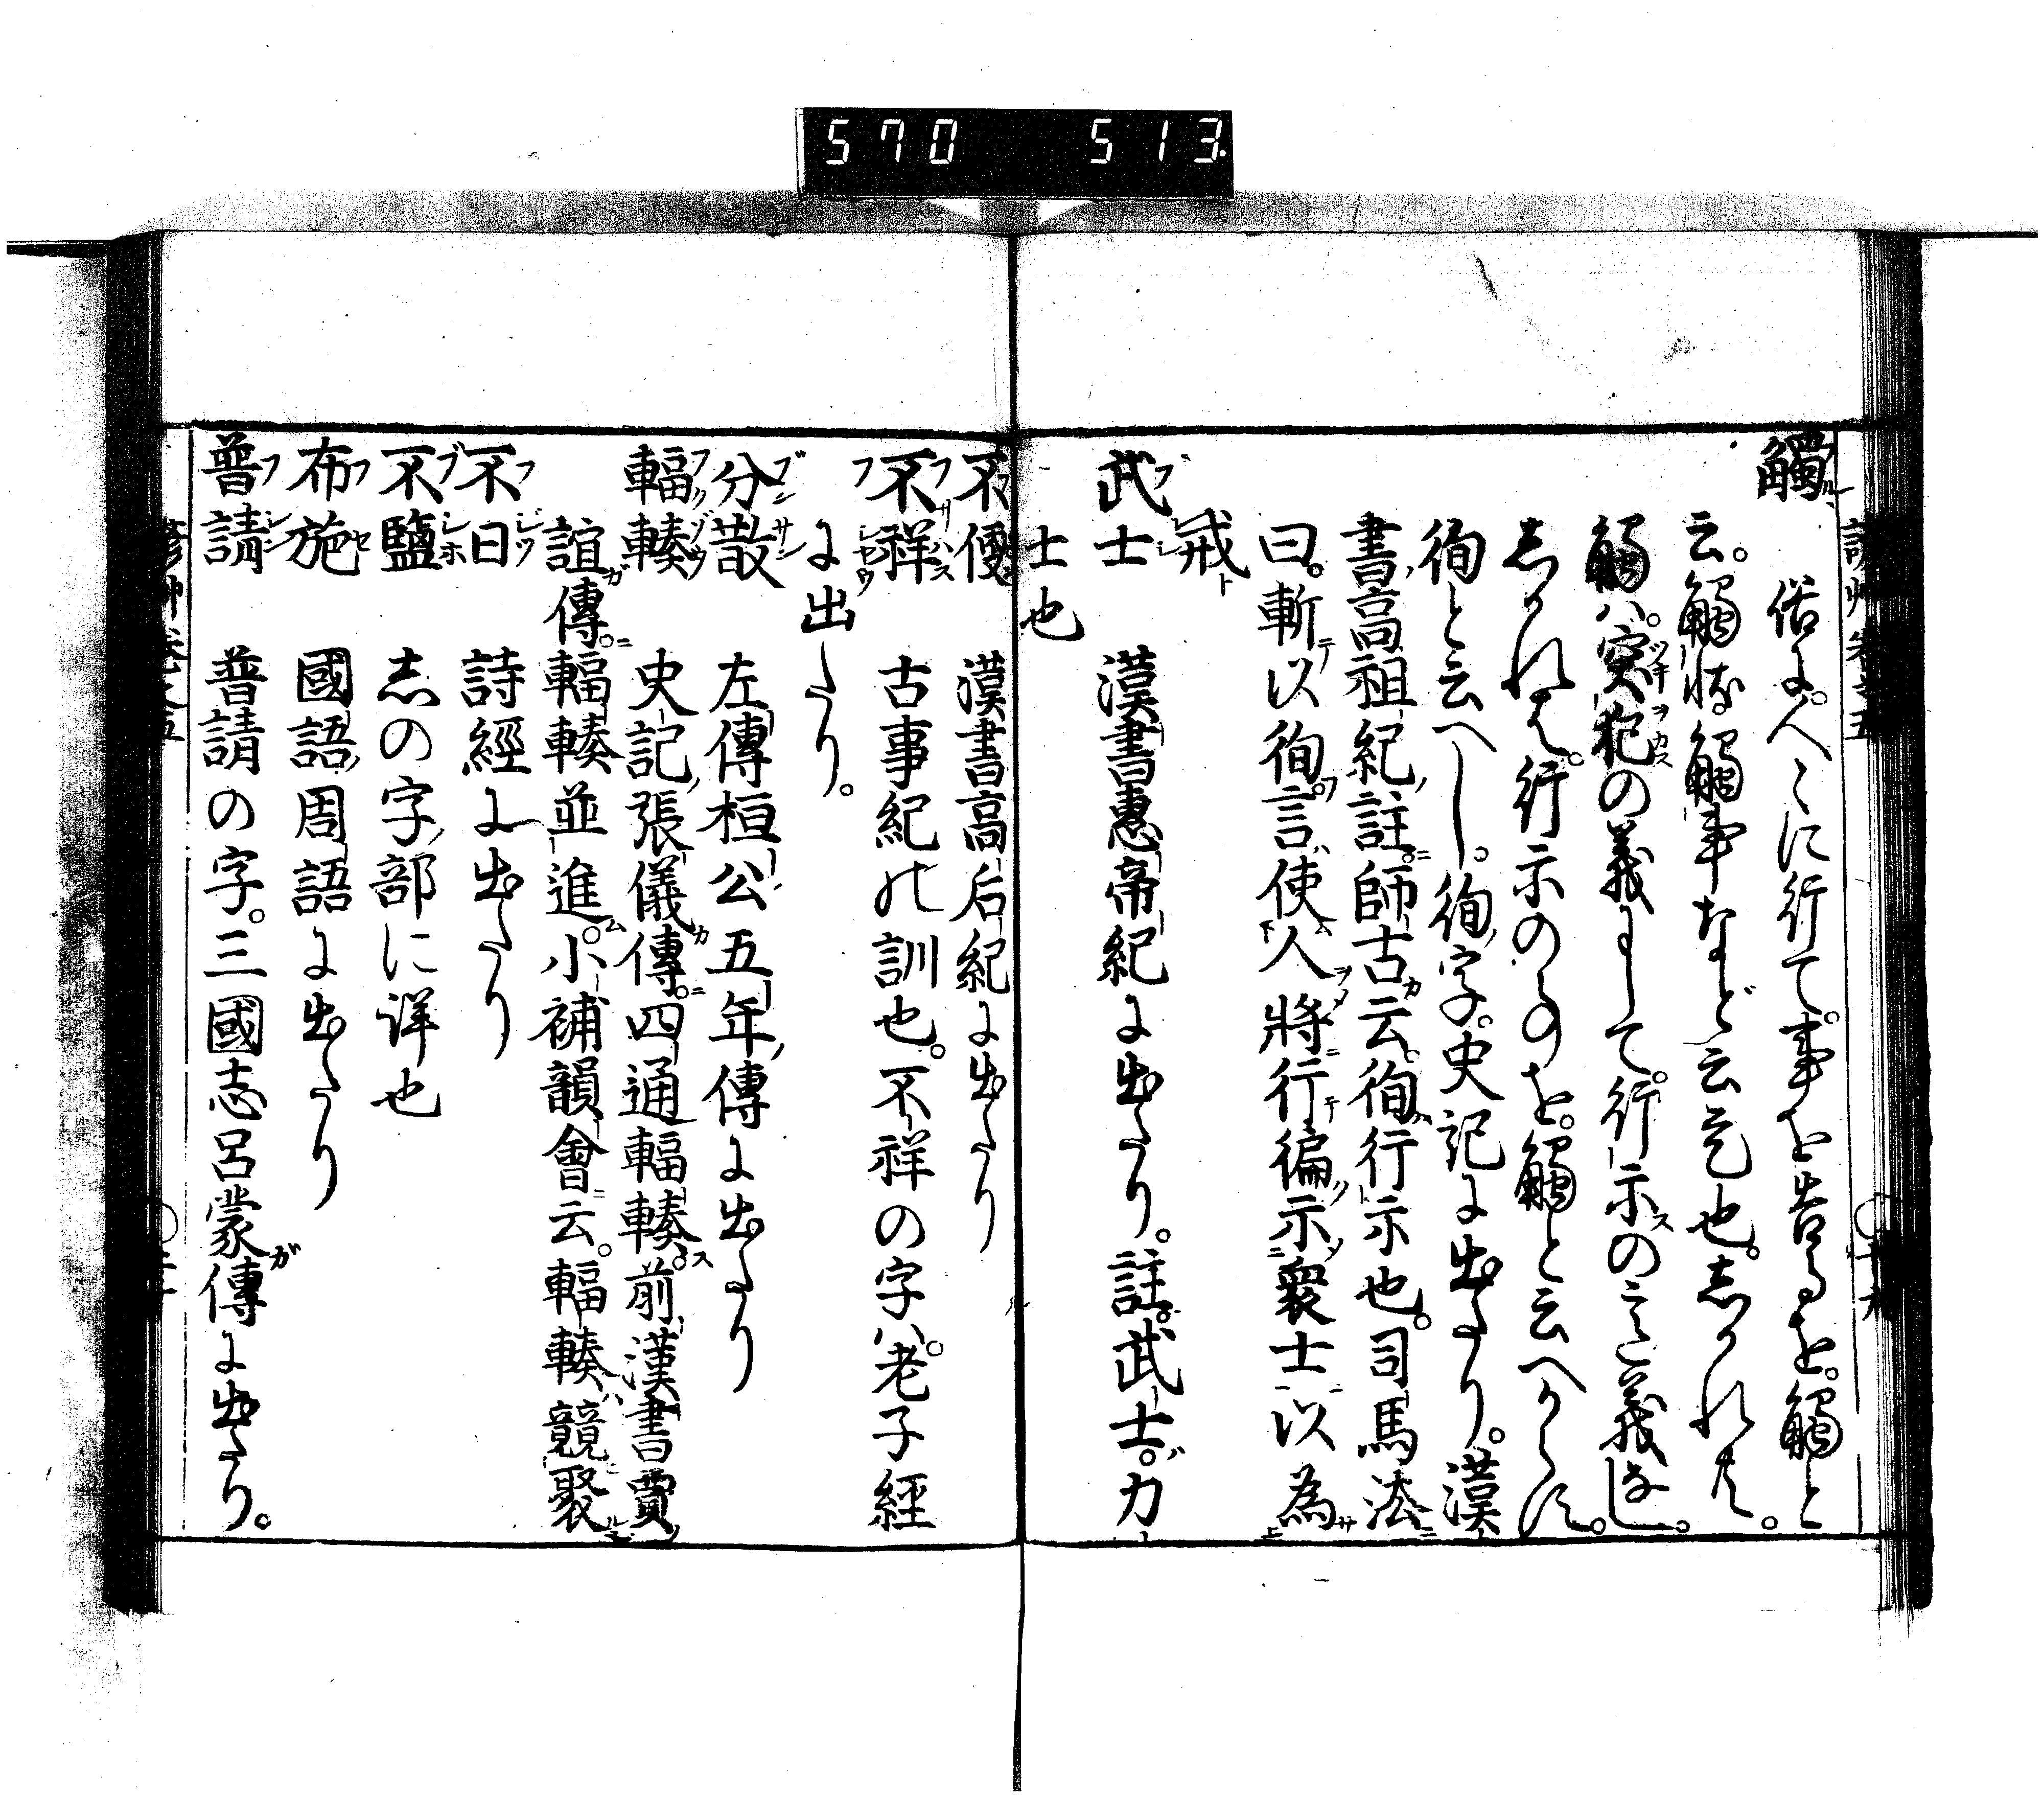 570 513
觸 俗に。人〻に行て。事を告るを。觸と
云。觸状觸事など云是也。しかれ共。
觸ハ。突犯の義にして。行示の義なし。
しかれば。行示のものを。觸と云へからず。
徇と云へし。徇ノ字。史記に出たり。漢
書高祖紀ノ註ニ。師古カ云。徇行示也。司馬法ニ
曰。斬テ以徇。言使人將行徧示衆士以為
戒ト
武士 漢書惠帝紀に出たり。註。武士。力
士也
不便 漢書高后紀に出たり
不祥 古事紀の訓也。不祥の字ハ。老子經
に出たり。
分散 左傳桓公五年ノ傳に出たり
輻輳 史記張儀カ傳ニ。四通輻輳ス。前漢書賈
誼ガ傳ニ。輻輳並進ム。小補韻會ニ云。輻輳競聚
不日 詩經に出たり
不鹽 志の字ノ部に詳也
布施 國語周語に出たり
普請 普請の字。三國志呂蒙ガ傳に出たり。